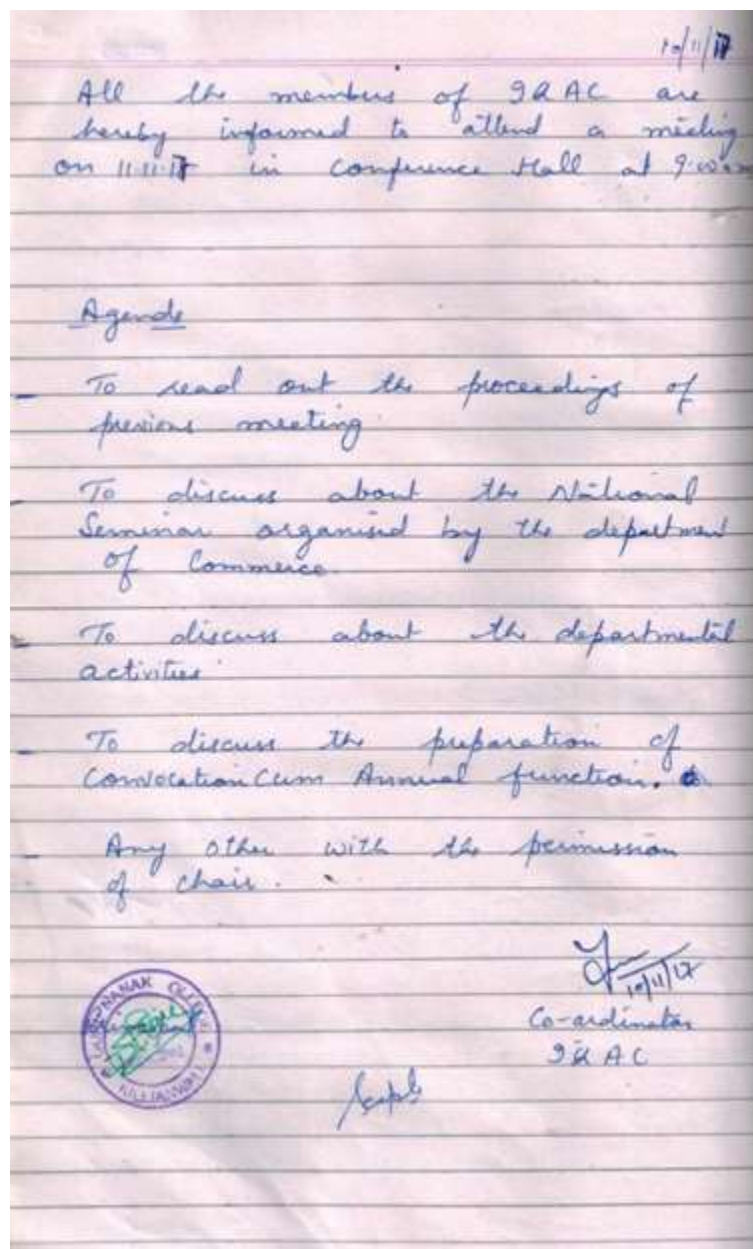 10/11/17
All the members of IQAC are
hereby informed to attend a meeting
on 11.11.17 in Conference Hall at 9.00 am
Agenda
- To read out the proceedings of
previous meeting
- To discuss about the National
Seminar organised by the department
of Commerce.
- To discuss about the departmental
activities
- To discuss the preparation of
Convocation Cum Annual function.
- Any other with the permission
of chair.
10/11/17
Co-ordinator
IQAC
NANAK